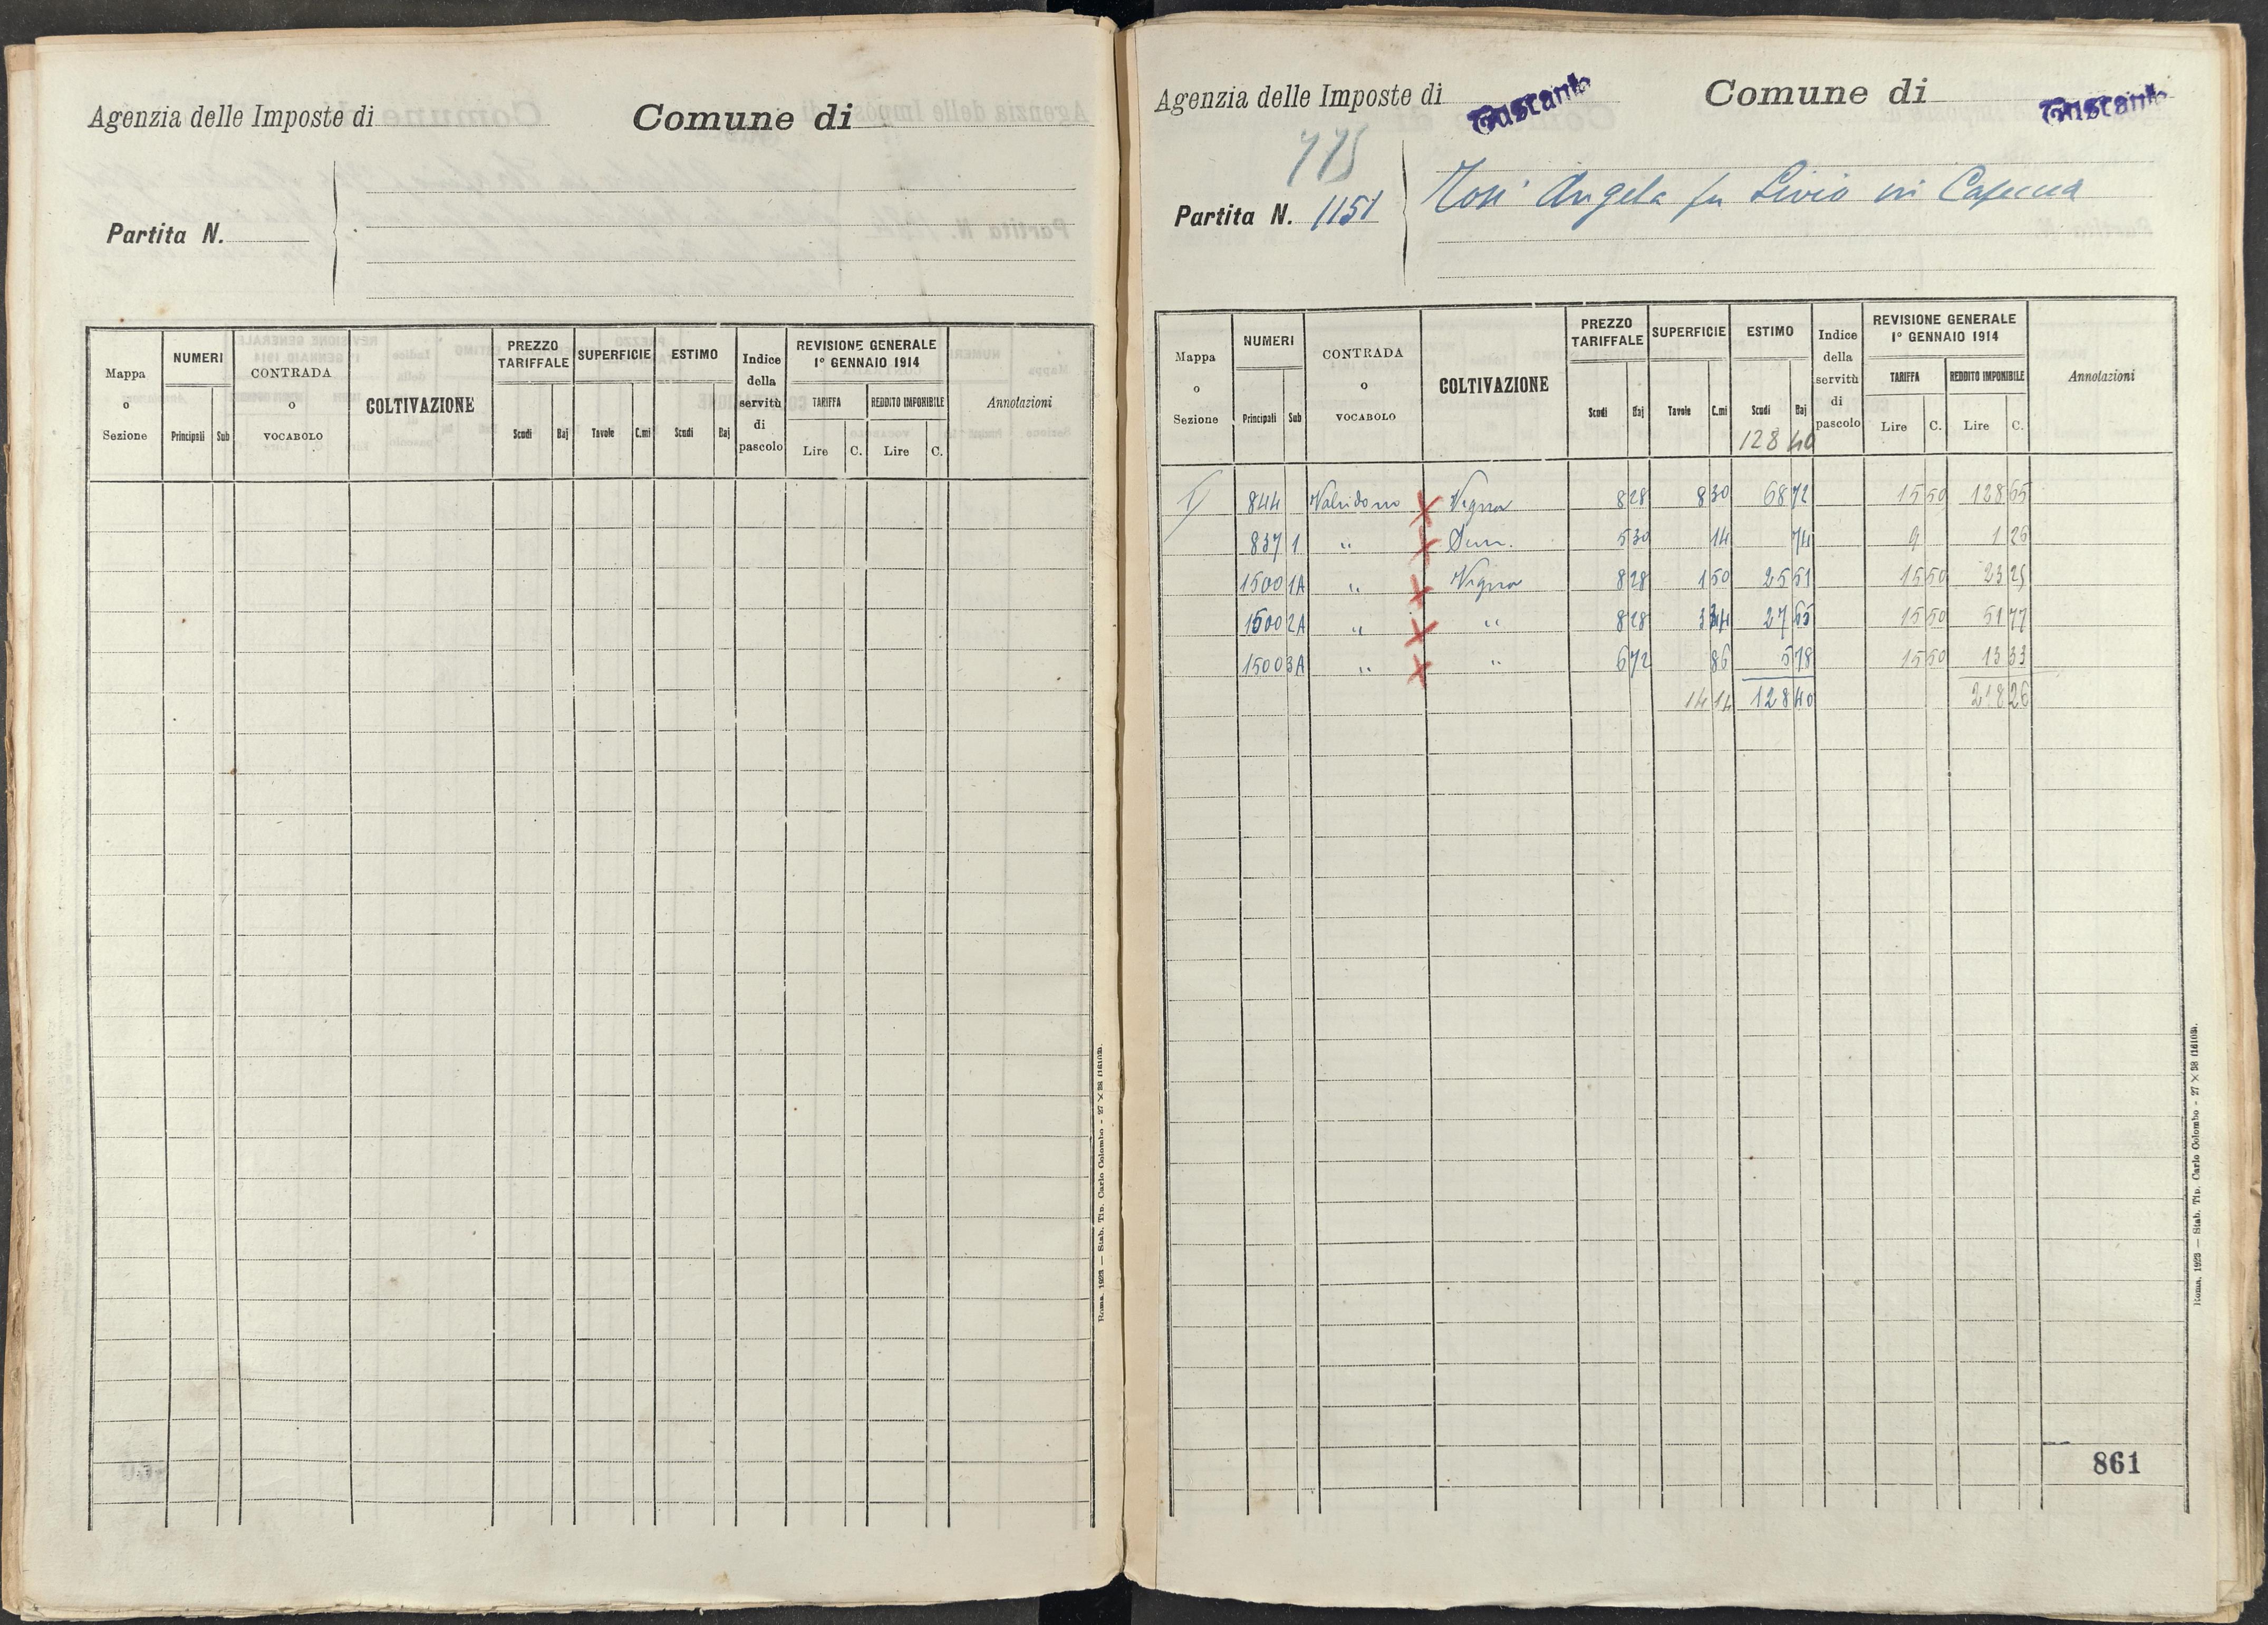 Agenzia delle Imposte di
Comune di
Partita N.
Mappa o Sezione
NUMERI
Principali
Sub
CONTRADA o VOCABOLO
COLTIVAZIONE
PREZZO TARIFFALE
Scudi
Baj
SUPERFICIE
Tavole
C.mi
ESTIMO
Scudi
Baj
Indice della servitù di pascolo
REVISIONE GENERALE 1º GENNAIO 1914
TARIFFA
Lire
C.
REDDITO IMPONIBILE
Lire
C.
Annotazioni
Roma, 1923 — Stab. Tip. Carlo Colombo - 27 × 38 (16103).
Agenzia delle Imposte di Tuscania
Comune di Tuscania
775
Partita N. 1151
Angela fu Livio in
Mappa o Sezione
NUMERI
Principali
Sub
CONTRADA o VOCABOLO
COLTIVAZIONE
PREZZO TARIFFALE
Scudi
Baj
SUPERFICIE
Tavole
C.mi
ESTIMO
Scudi
Baj
128 40
Indice della servitù di pascolo
REVISIONE GENERALE 1º GENNAIO 1914
TARIFFA
Lire
C.
REDDITO IMPONIBILE
Lire
C.
Annotazioni
844 Validoro X Vigna 8 28 8 30 68 72 15 50 128 65
837 1 " X Sem. 5 30 14 74 9 1 26
1500 1A " X Vigna 8 28 1 50 25 51 15 50 23 25
1500 2A " X " 8 28 3 34 27 65 15 50 51 77
1500 3A " X " 6 72 86 5 78 15 50 13 33
14 14 128 40 218 26
Roma, 1923 — Stab. Tip. Carlo Colombo - 27 × 38 (16103).
861